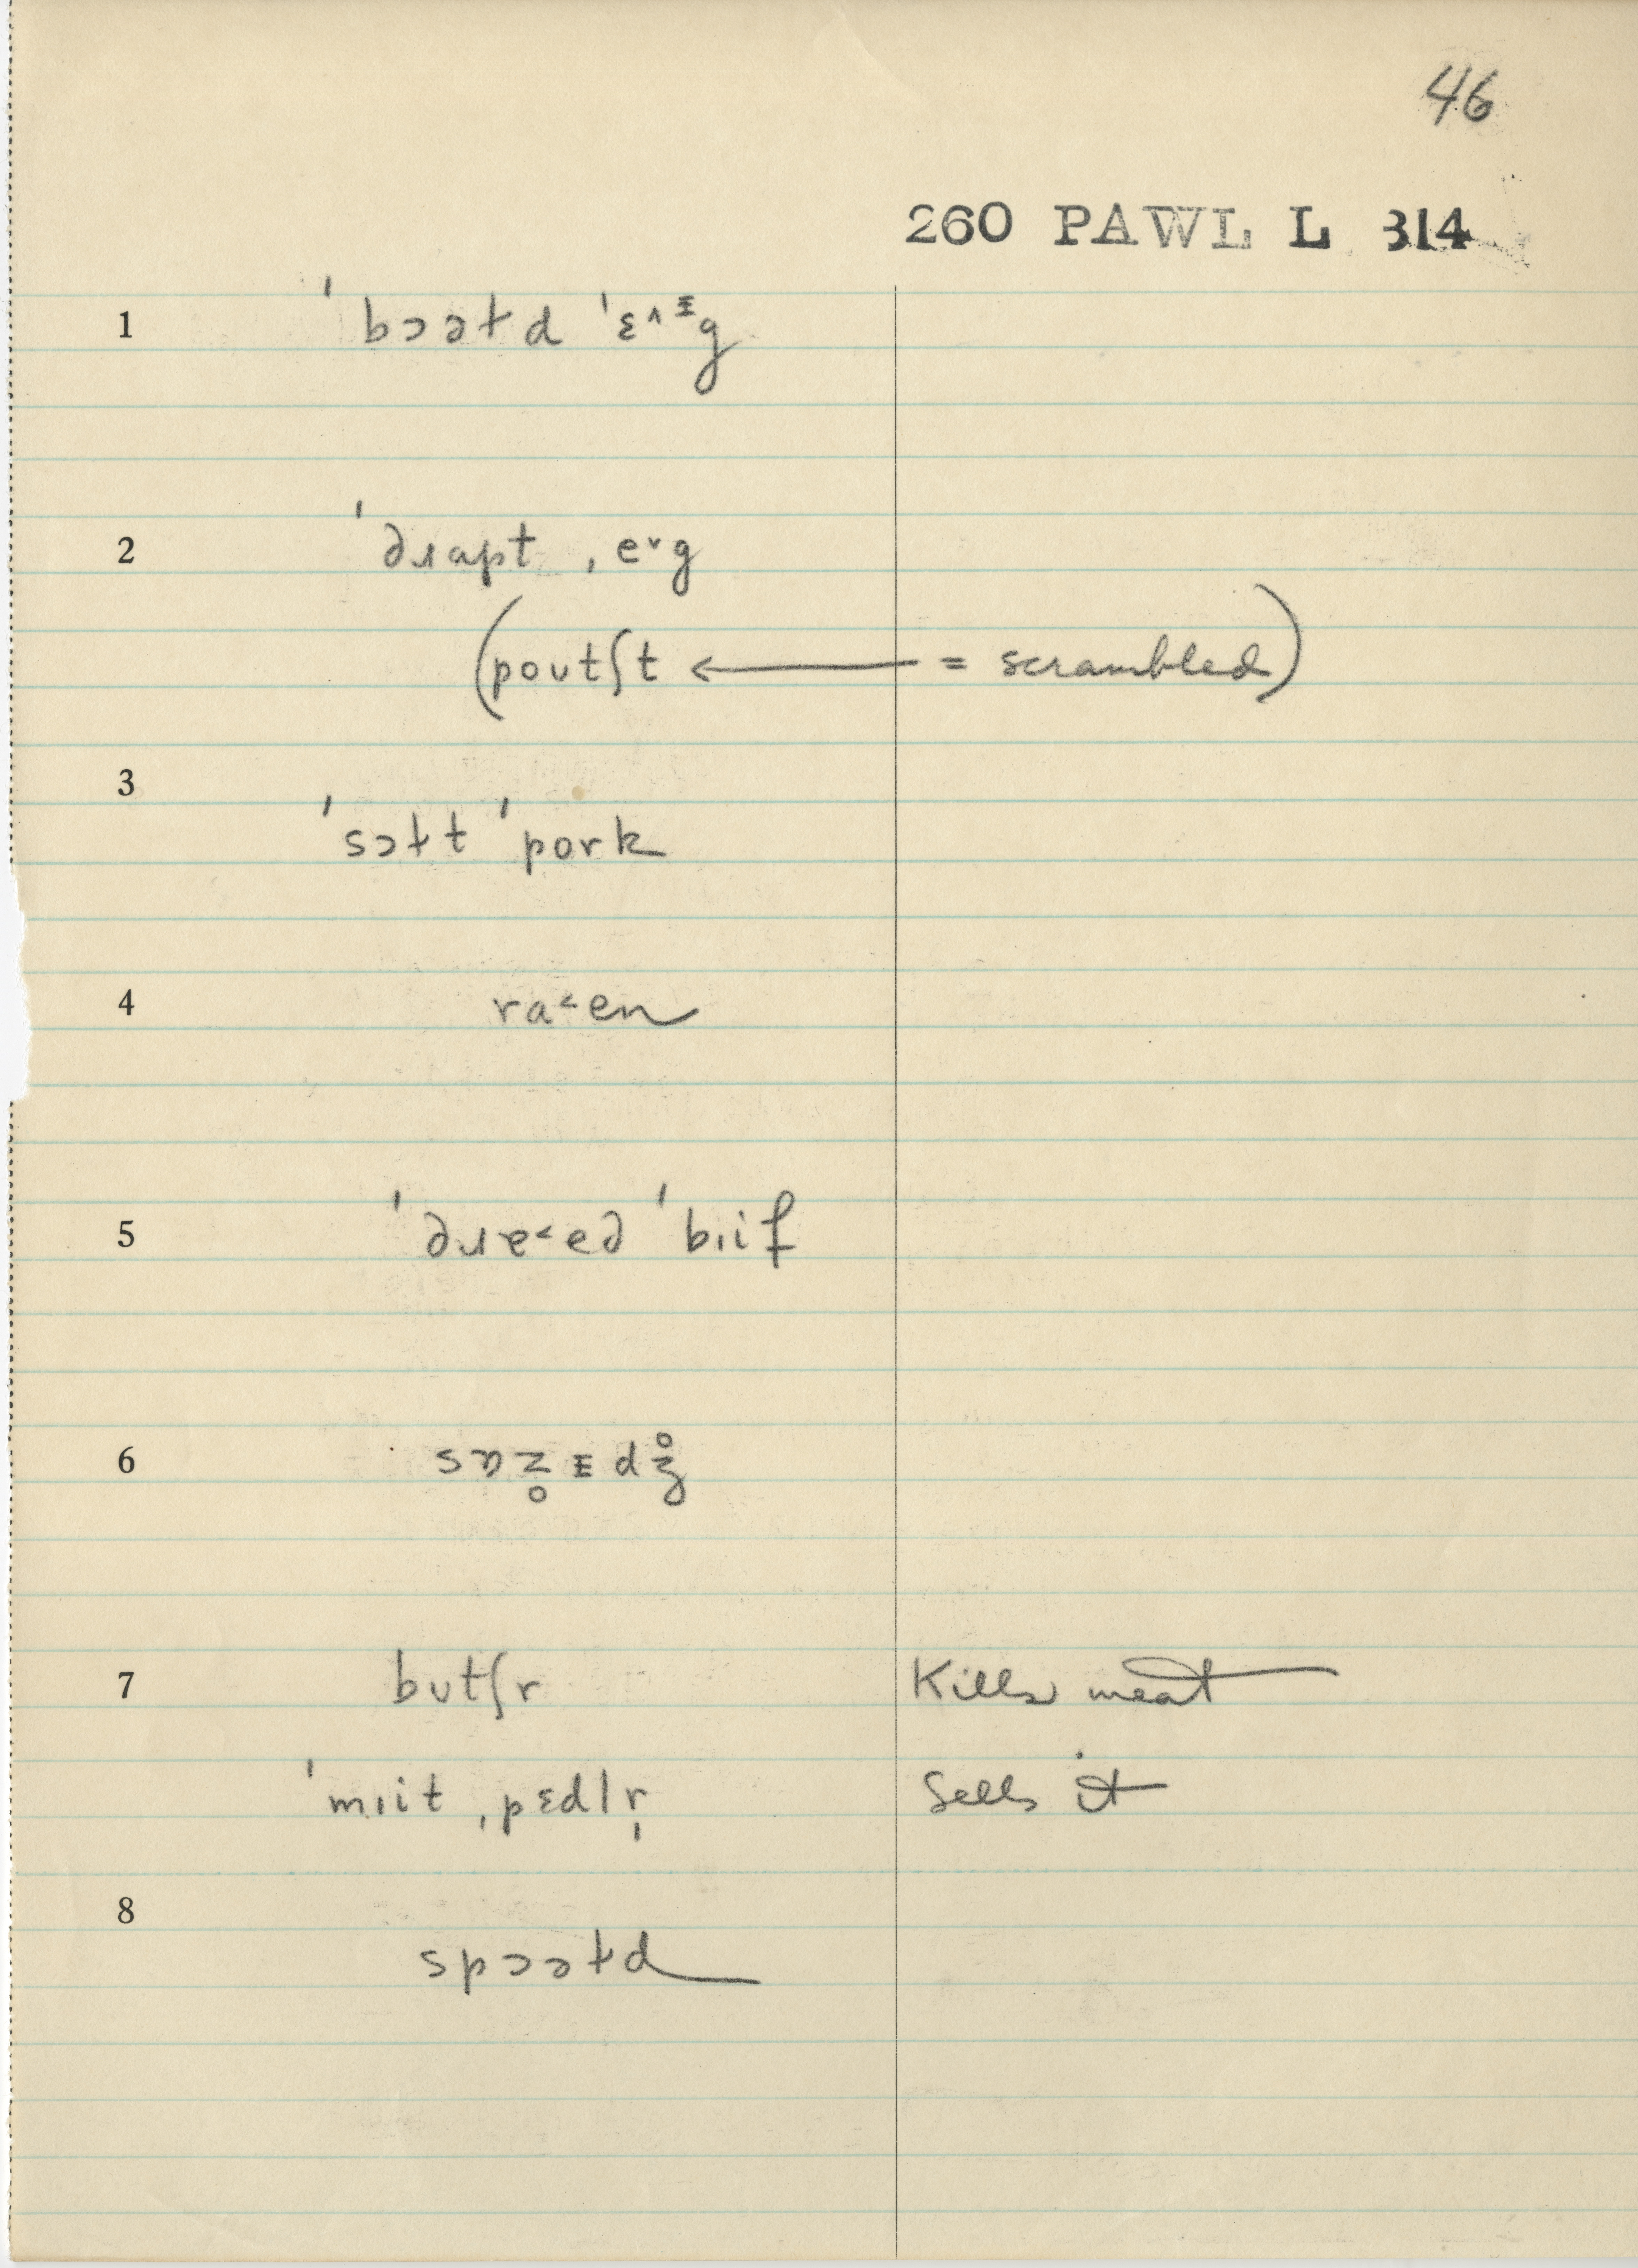 46
260 PAWL L 314
1 ˈbɔətd ˈɛ^ᶤg
2 ˈdɹapt ˌe˅g
(poutʃt ← = scrambled)
3 ˈsɔɫt ˈpork
4 ra˂en
5 ˈdɹe˂ed ˈbiif
6
7 butʃr Kills meat
ˈmiit ˌpɛdlr̩ Sells it
8 spɔəɫd